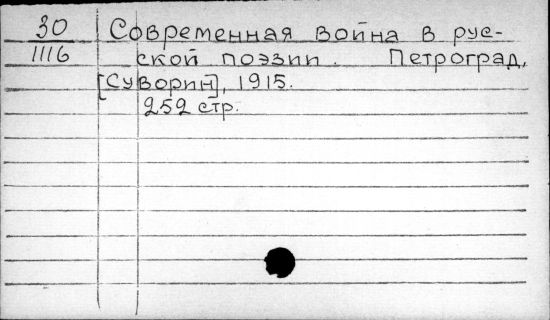 30 Современная война в рус-
1116 ской поэзии. Петроград,
[Суворин], 1915.
252 стр.